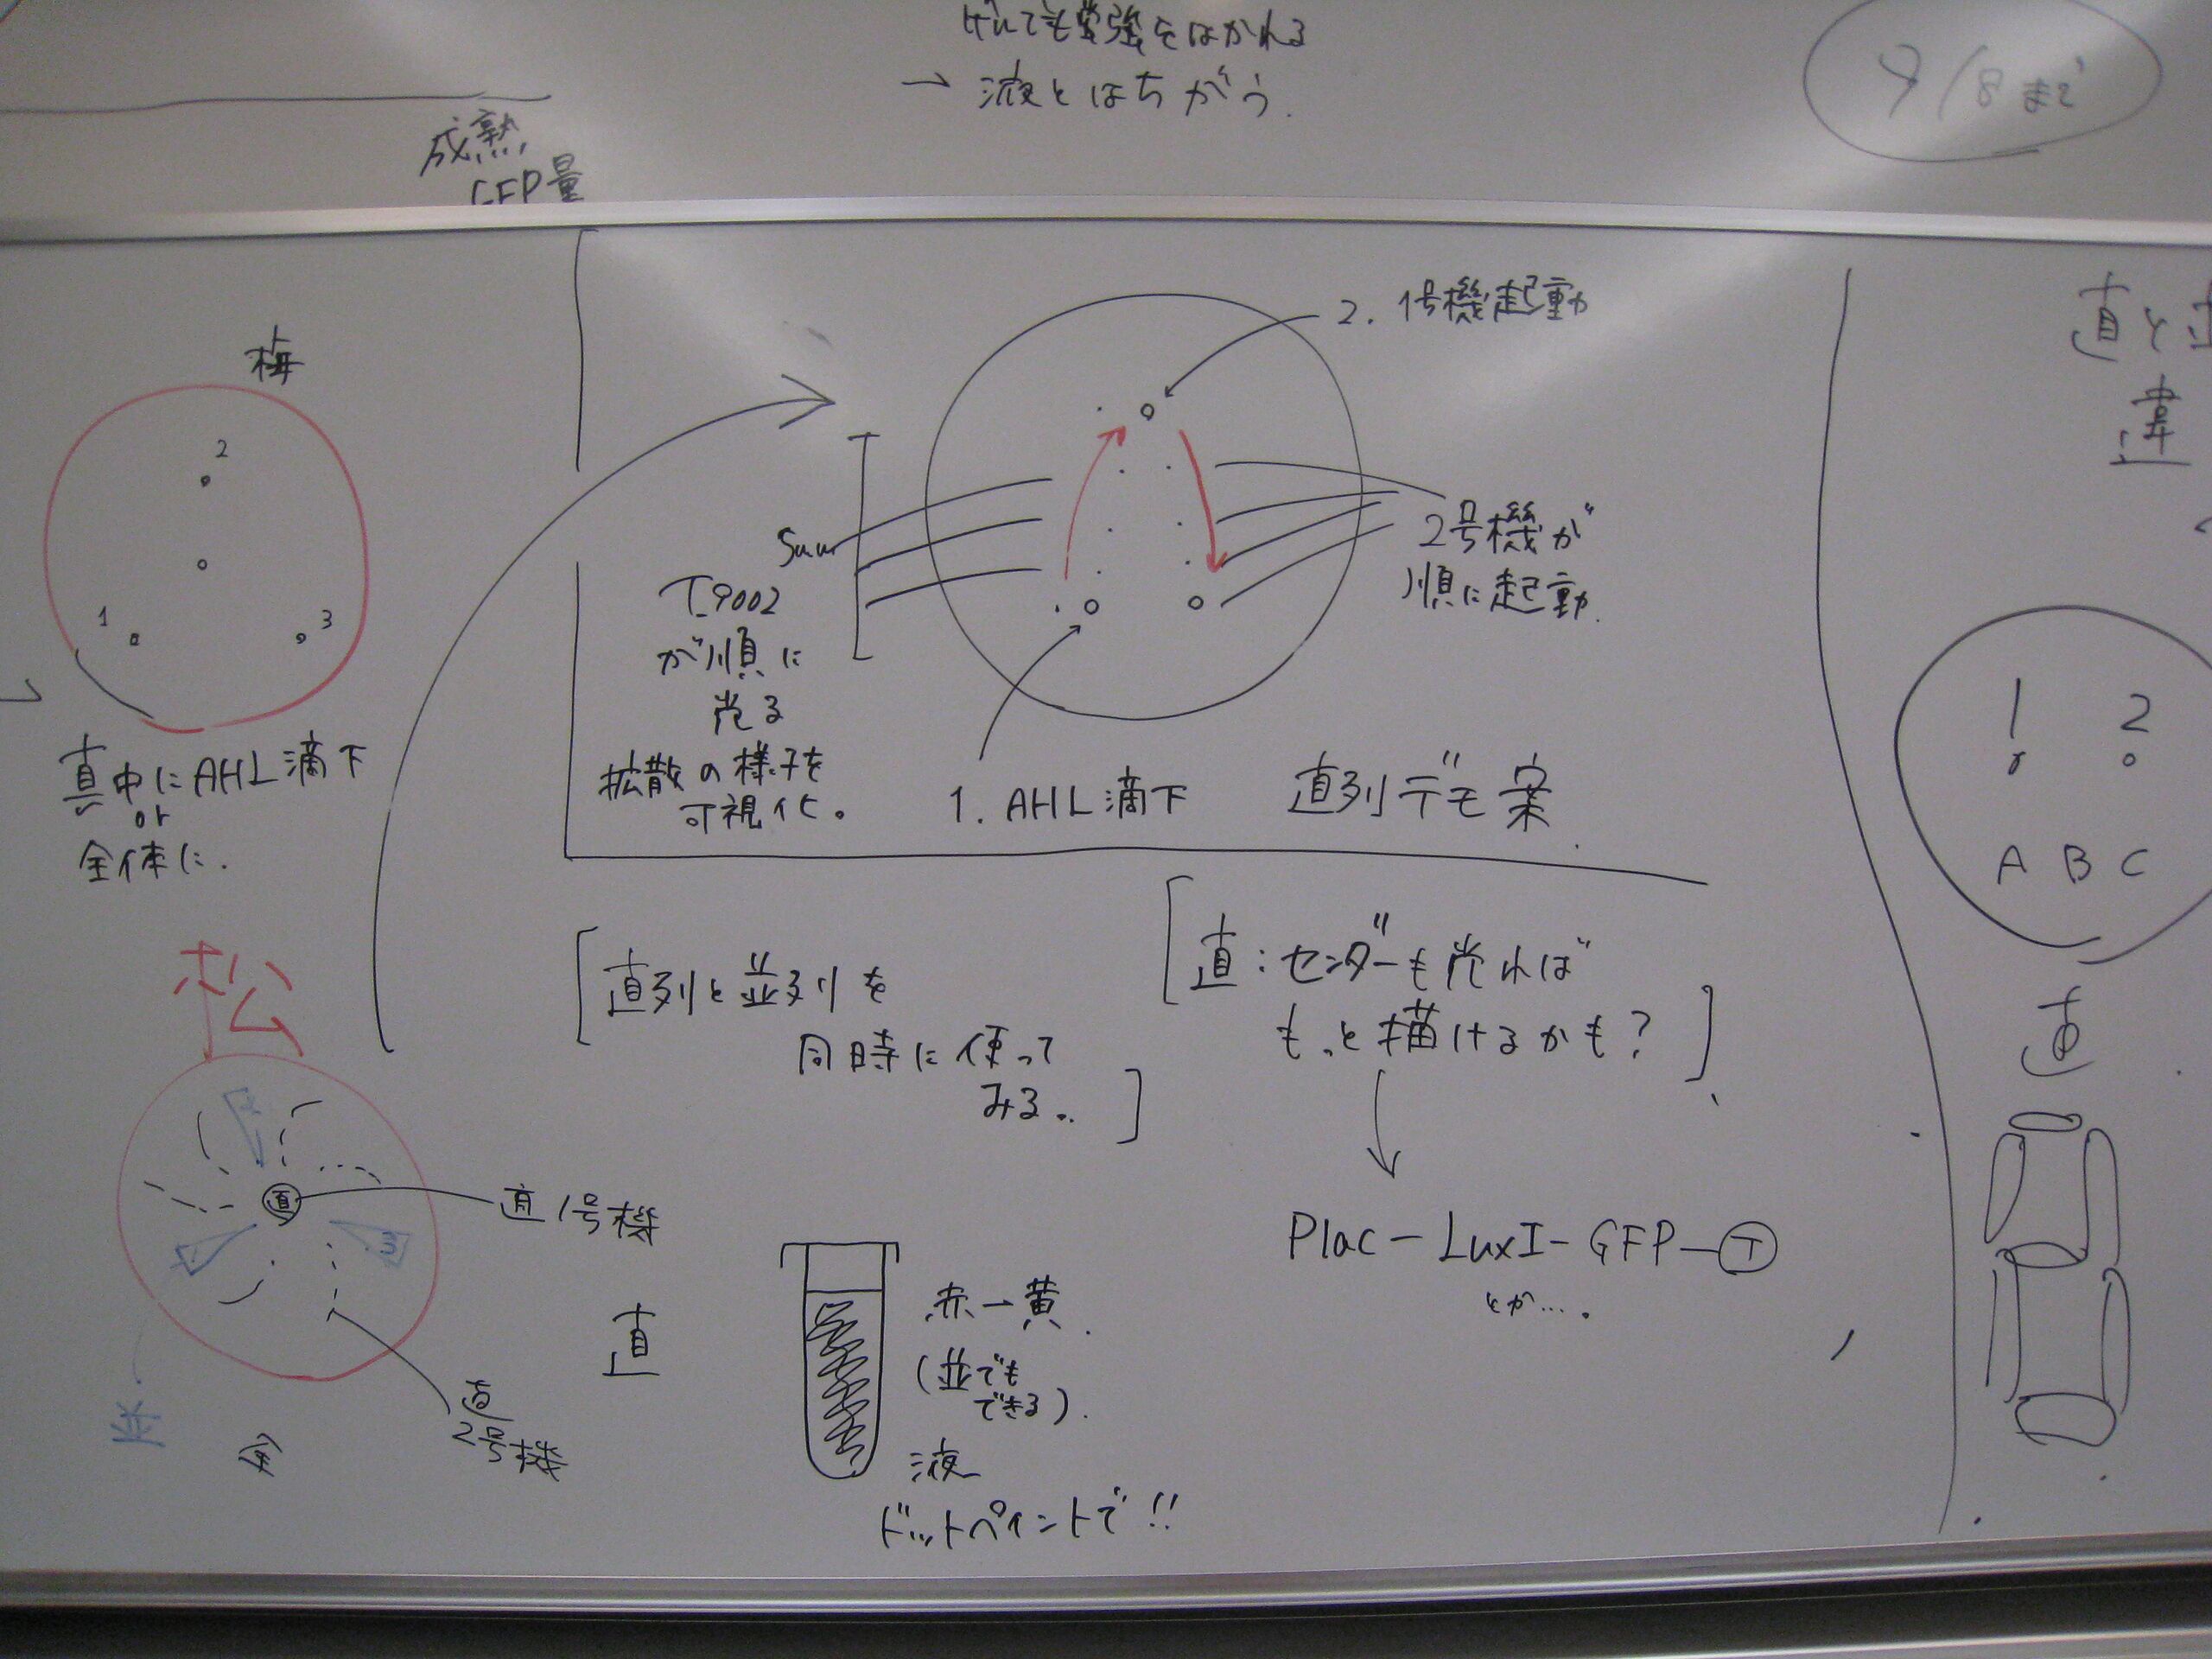 ゲルでも蛍強をはかれる
→ 液とはちがう.
9/8まで
成熟
GFP量
梅
2
1
3
真中にAHL滴下
or
全体に.
2. 1号機起動
5mm
T9002
が順に
光る
拡散の様子を
可視化。
2号機が
順に起動.
1. AHL滴下
直列デモ案
直と
違
1 2
A B C
直
[直列と並列を
同時に使って
みる..]
[直:センダーも光れば
もっと描けるかも?]
Plac-LuxI-GFP-T
とか….
松
2
1
3
直
直1号機
直
2号機
直
赤→黄.
(並でも
できる).
液
ドットペイントで!!